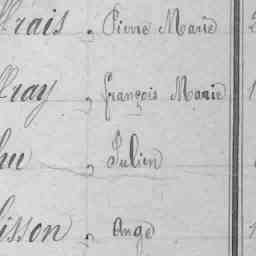 frais, Pierre Marie 2
ffray, françois Marie 1
hu, Julien
isson, Ange 1